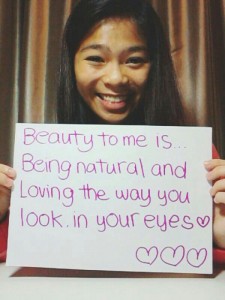 Beauty to me is...
Being natural and
Loving the way you
look. in your eyes♡
♡♡♡